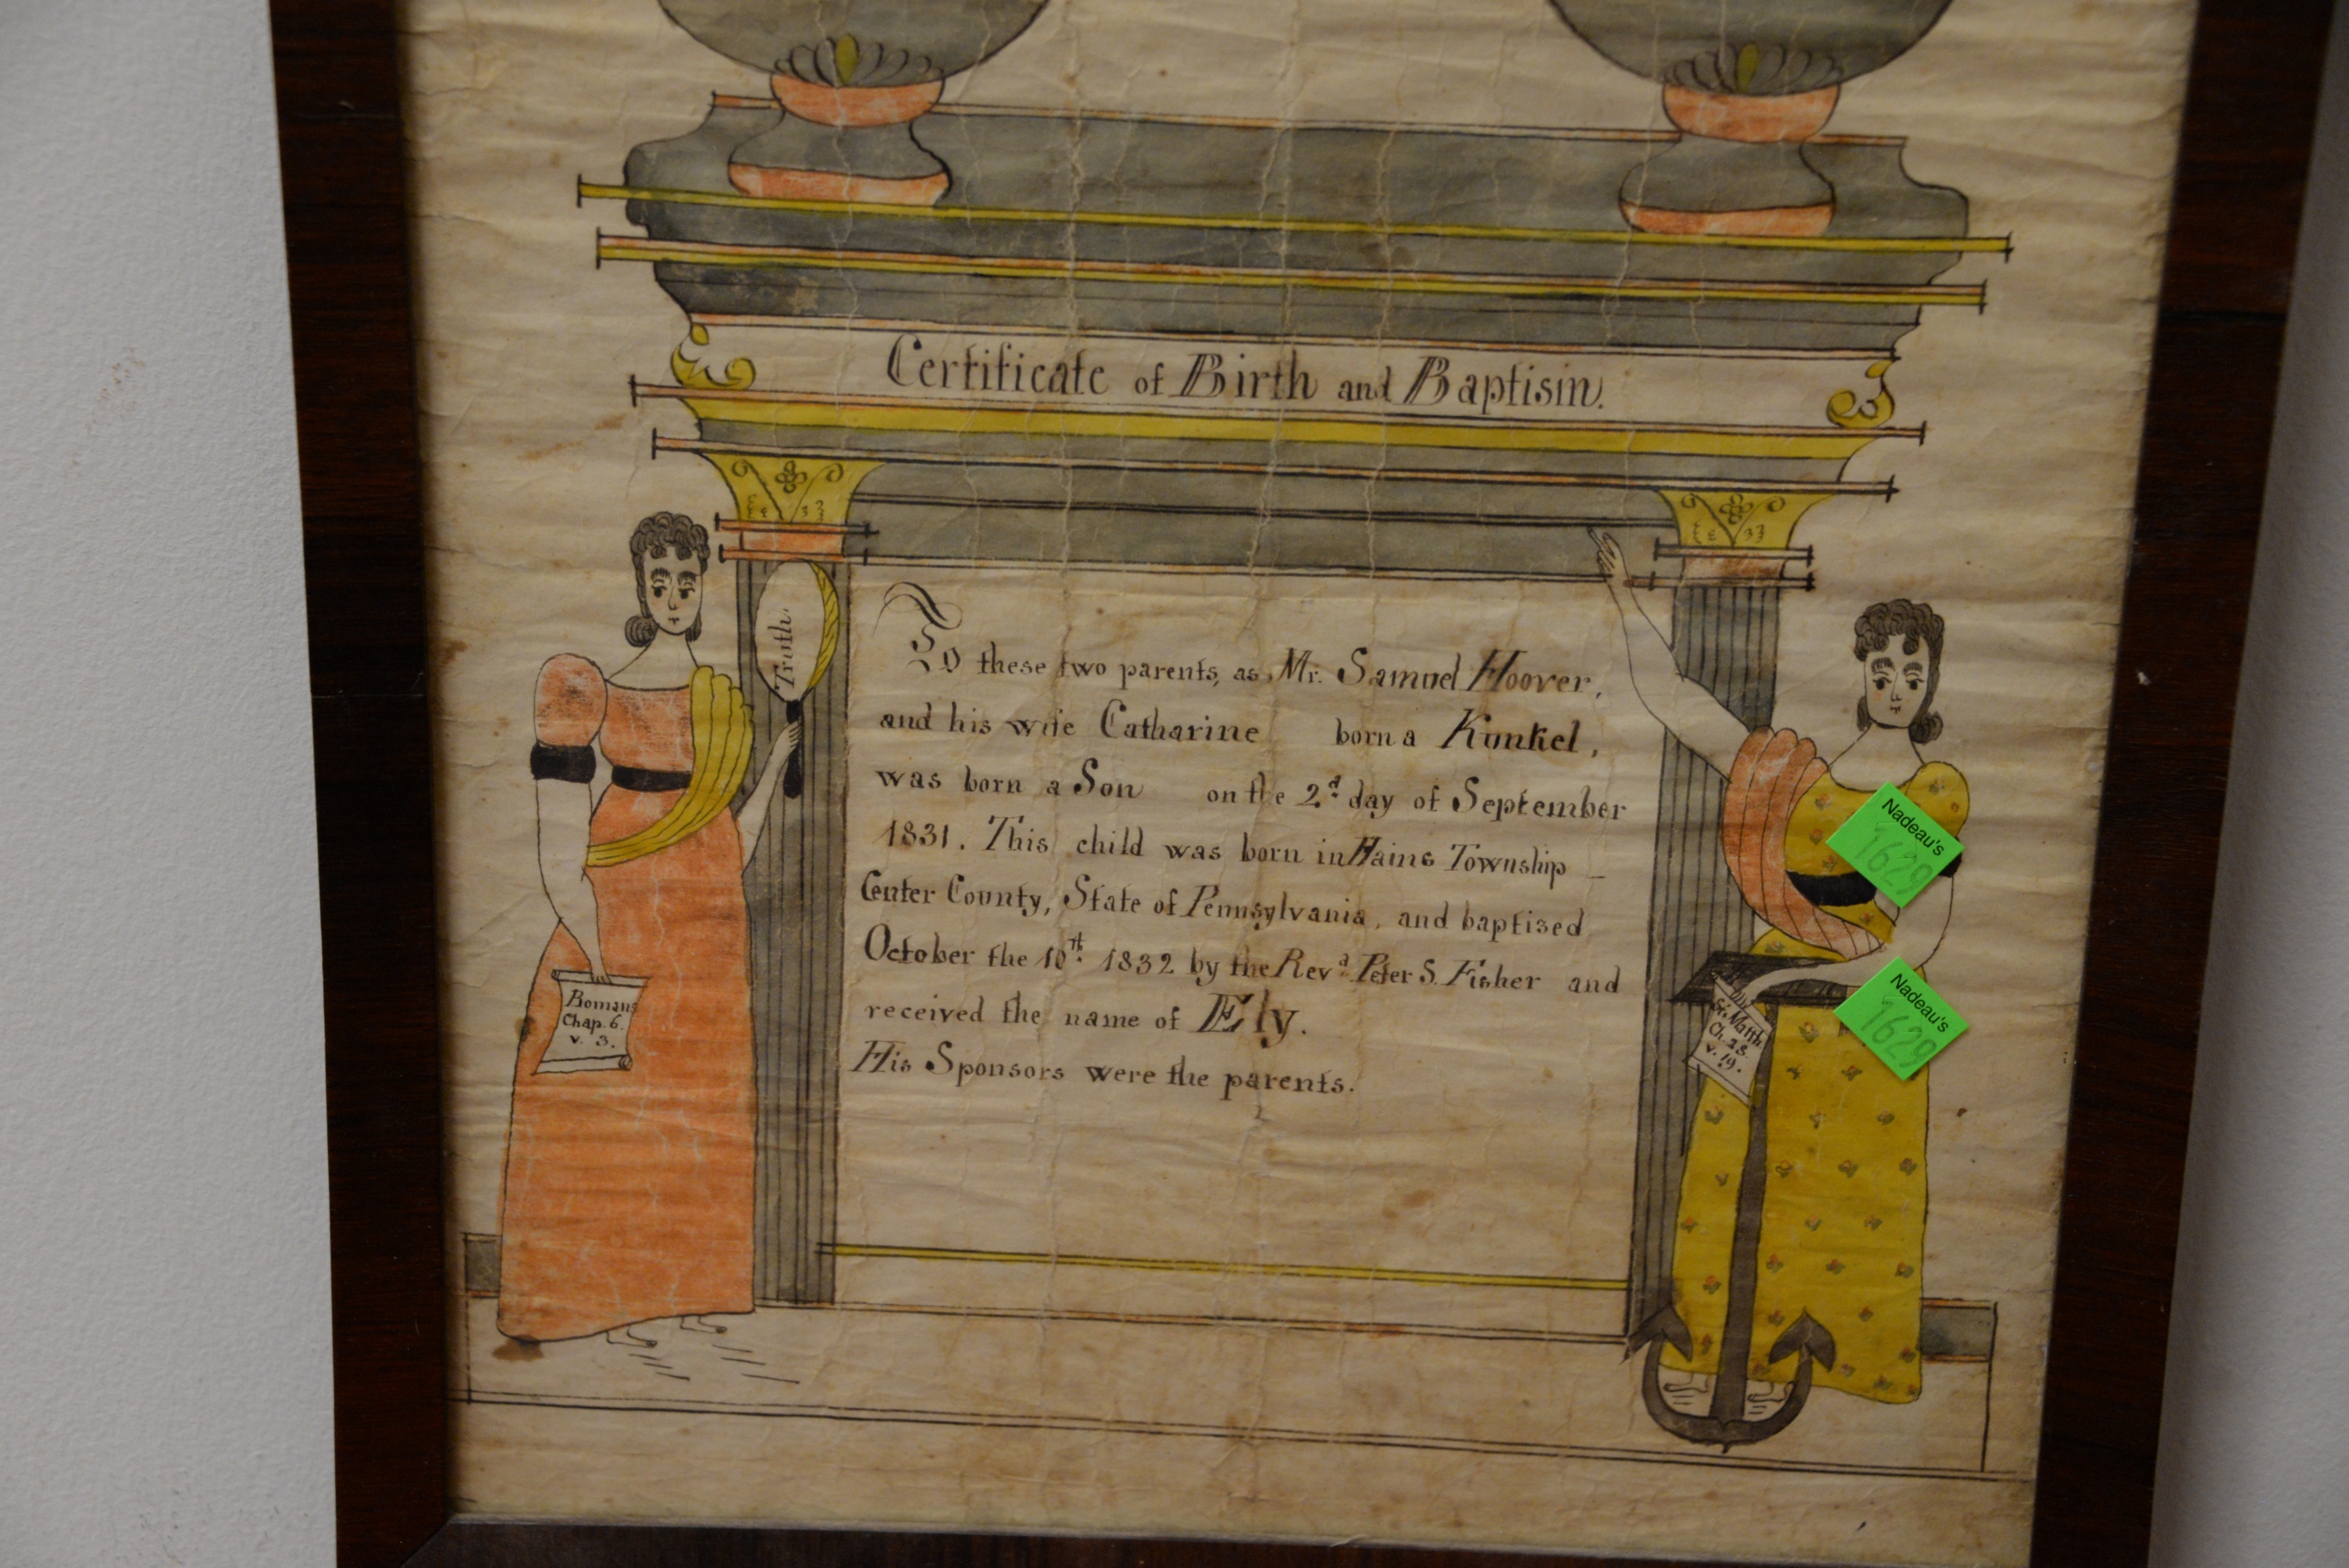 Certificate of Birth and Baptism.
Truth.
To these two parents, as Mr. Samuel Hoover,
and his wife Catharine born a Kunkel,
was born a Son on the 2d day of September
1831. This child was born in Hains Township
Center County, State of Pennsylvania, and baptized
October the 10th 1832 by the Revd Peter S. Fisher and
received the name of Ely.
His Sponsors were the parents.
Romans
Chap. 6.
v. 3.
St. Matth.
Ch. 28.
v. 19.
Nadeau's
1629
Nadeau's
1629